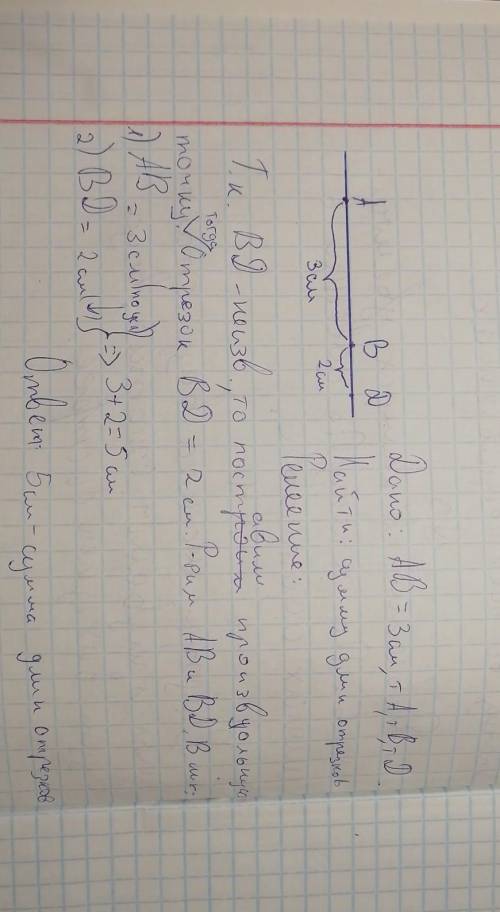 Дано: AB = 3см, т A, т B, т D.
Найти: сумму длин отрезков
Решение:
A B D
3см 2см
Т.к. BD - неизв, то поставим произвольную
точку. тогда Отрезок BD = 2см. Р-рим AB и BD. В них:
1) AB = 3см (по усл)
2) BD = 2см } => 3+2=5см
Ответ: 5см - сумма длин отрезков